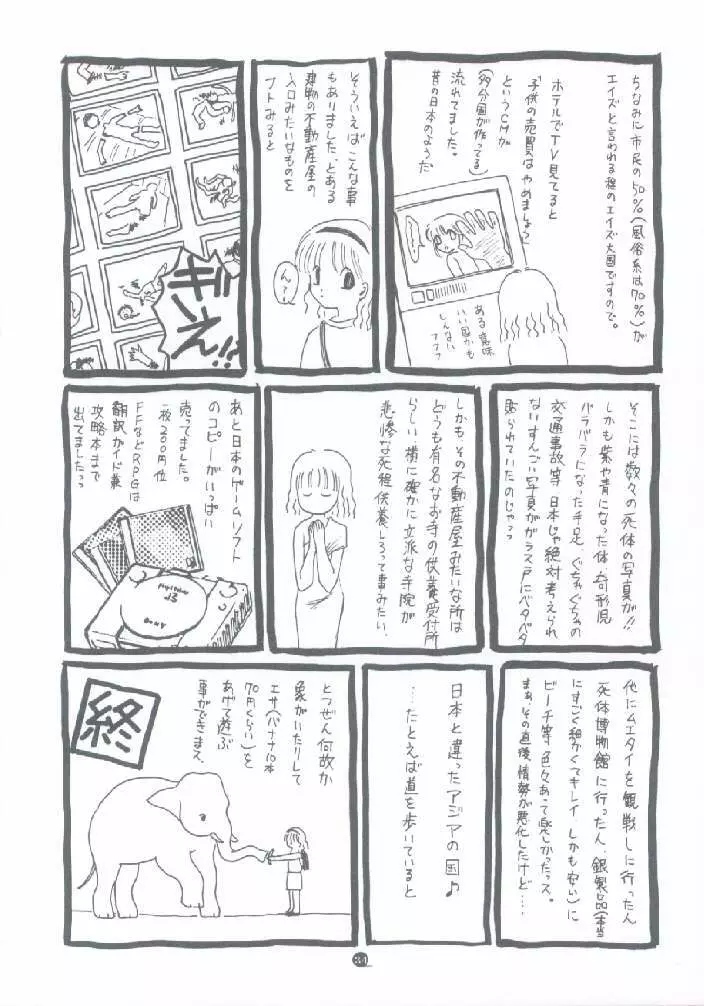 ちなみに市民の50%(風俗系は70%)が
エイズと言われる程のエイズ大国ですので。
ホテルでTV見てると
「子供の売買はやめましょう」
というCMが
(多分国が作ってる)
流れてました。
昔の日本のようだ
ある意味
いい国かも
しんない
そういえばこんな事
もありました、とある
建物の不動産屋の
入口みたいなものを
フトみると
ん?
ギえ!!
そこには数々の死体の写真が!!
しかも紫や青になった体、奇形児
バラバラになった手足、ぐちゃぐちゃの
交通事故等 日本じゃ絶対考えられ
ないすんごい写真がガラス戸にベタベタ
貼られていたのじゃっっ
しかも、その不動産屋みたいな所は
どうも有名なお寺の供養受付所
らしい、横に確かに立派な寺院が
悲惨な死程供養しろって事みたい、
あと日本のゲームソフト
のコピーがいっぱい
売ってました。
一枚200円位
FFなどRPGは
翻訳ガイド兼
攻略本まで
出てましたっっ
他にムエタイを観戦しに行ったん
死体博物館に行ったん、銀製品(本当
にすごく細かくてキレイ、しかも安い)に
ビーチ等、色々あって楽しかったっス。
まぁ、その直後、情勢が悪化したけど……
日本と違ったアジアの国♪
…たとえば道を歩いていると
とつぜん何故か
象がいたりして
エサ(バナナ10本
70円くらい)を
あげて遊ぶ
事ができまス、
終
34